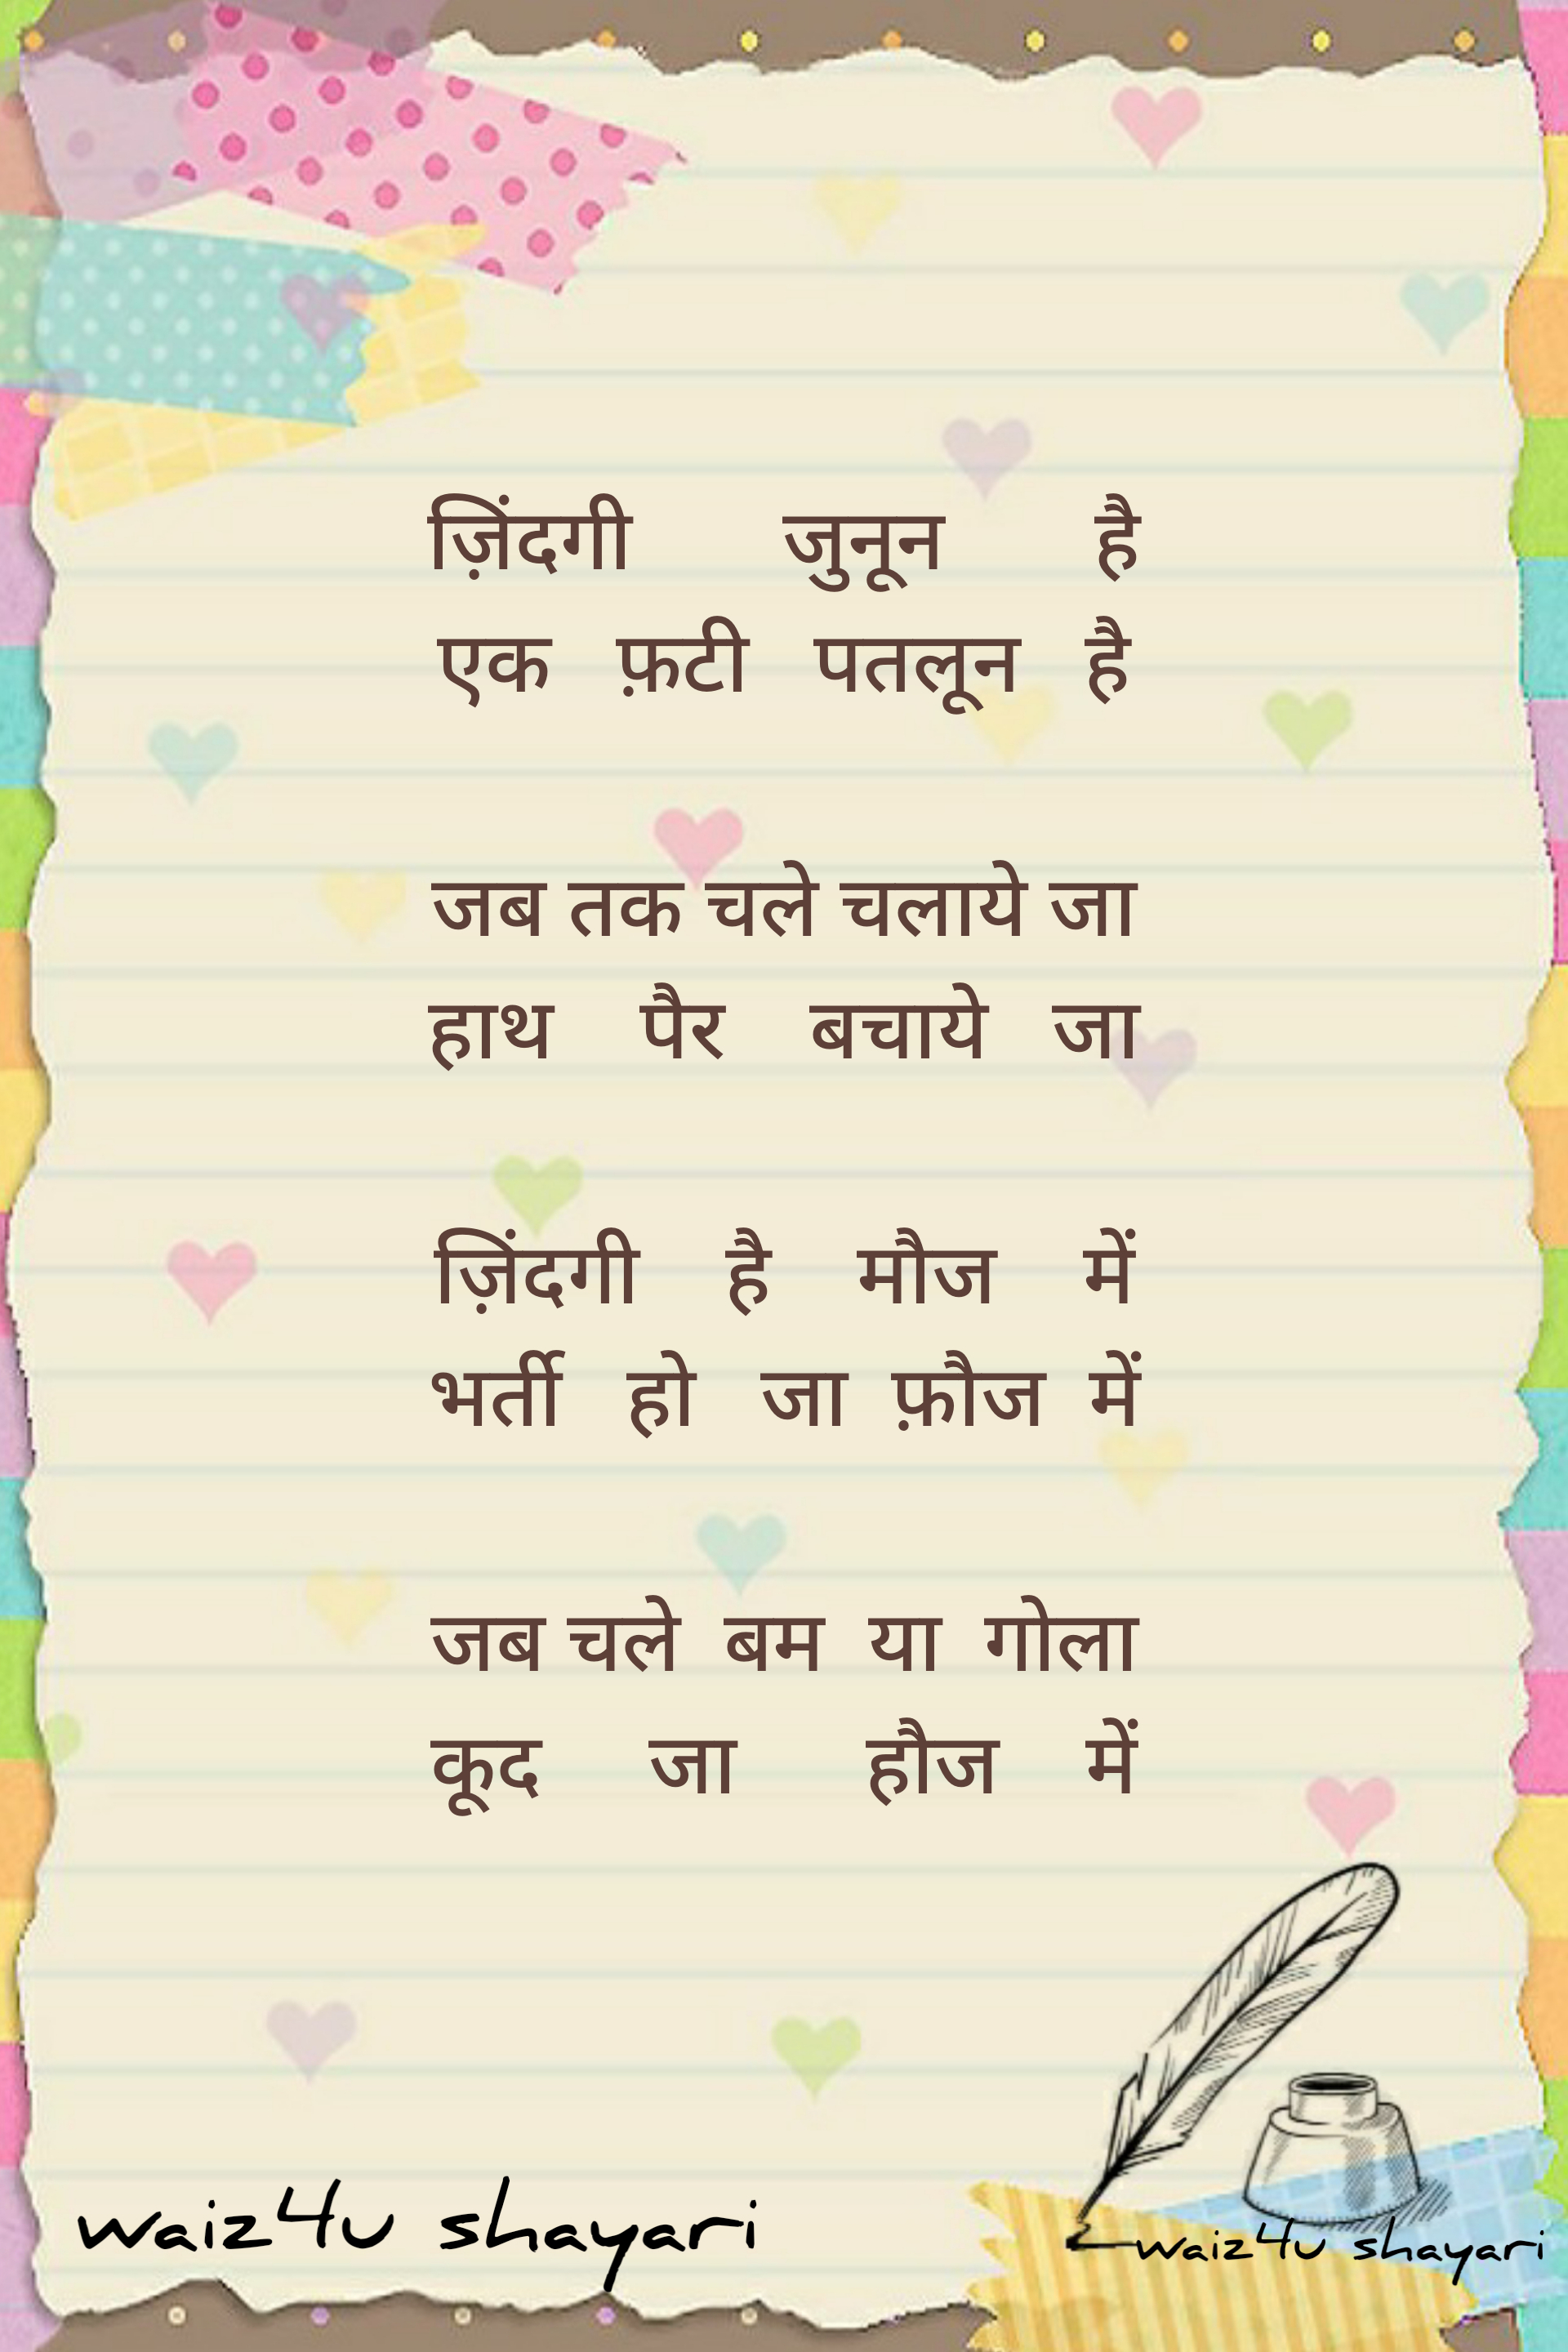 ज़िंदगी जुनून है
एक फ़टी पतलून है
जब तक चले चलाये जा
हाथ पैर बचाये जा
ज़िंदगी है मौज में
भर्ती हो जा फ़ौज में
जब चले बम या गोला
कूद जा हौज में
waiz4u shayari
waiz4u shayari